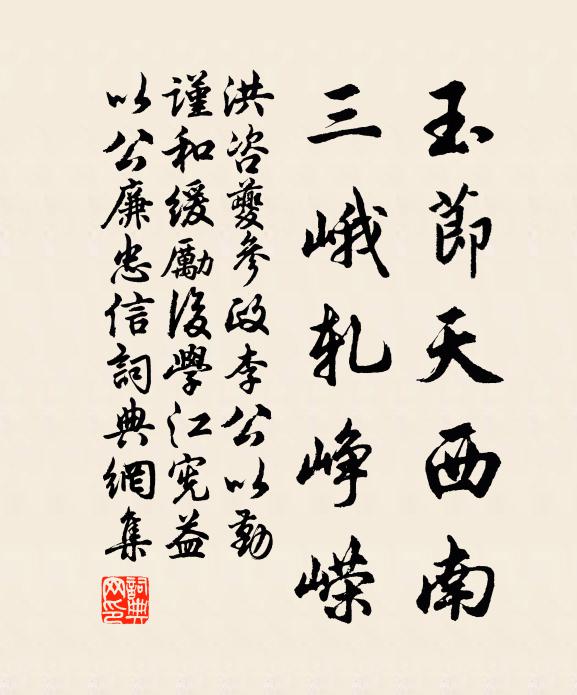 玉節天西南
三峨軋峥嶸
洪咨夔參政李公以勤
謹和緩勵後學江宪益
以公廉忠信詞典網集
詞典网印